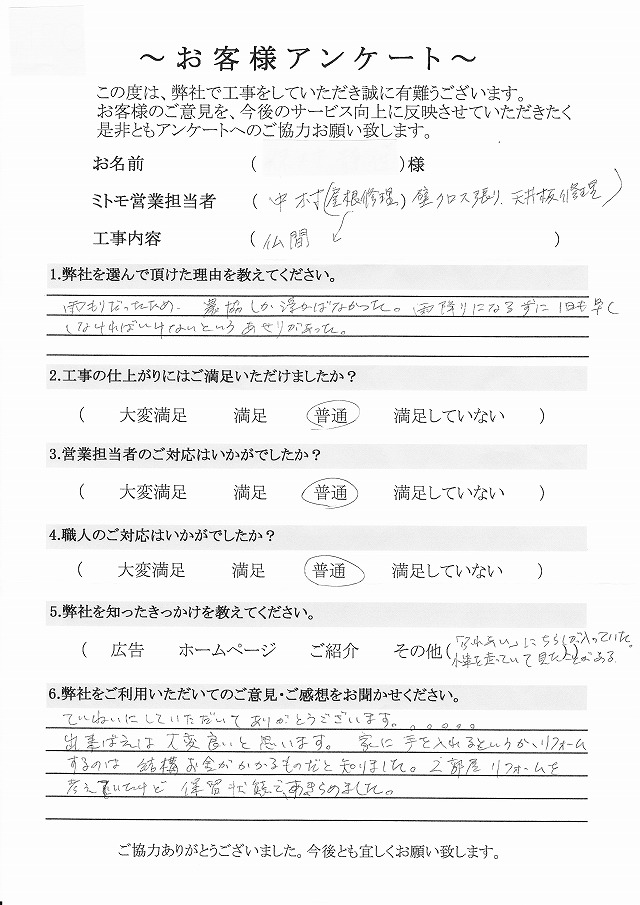 ～お客様アンケート～
この度は、弊社で工事をしていただき誠に有難うございます。
お客様のご意見を、今後のサービス向上に反映させていただきたく
是非ともアンケートへのご協力お願い致します。
お名前 ( )様
ミトモ営業担当者 ( 中村(屋根修理) 壁クロス張り、天井板修理 )
工事内容 ( 仏間 )
1.弊社を選んで頂けた理由を教えてください。
雨もりだったため、農協しか浮かばなかった。雨降りになるずに1日も早く
しなければいけないというあせりがあった。
2.工事の仕上がりにはご満足いただけましたか？
( 大変満足 満足 普通 満足していない )
3.営業担当者のご対応はいかがでしたか？
( 大変満足 満足 普通 満足していない )
4.職人のご対応はいかがでしたか？
( 大変満足 満足 普通 満足していない )
5.弊社を知ったきっかけを教えてください。
( 広告 ホームページ ご紹介 その他( 「ふれあい」にちらしが入っていた。
車を走っていて見たことがある。
6.弊社をご利用いただいてのご意見・ご感想をお聞かせください。
ていねいにしていただいてありがとうございます。。。。。。
出来ばえは大変良いと思います。家に手を入れるというか、リフォーム
するのは結構お金がかかるものだと知りました。2部屋リフォームを
考えていたけど保留状態で、あきらめました。
ご協力ありがとうございました。今後とも宜しくお願い致します。